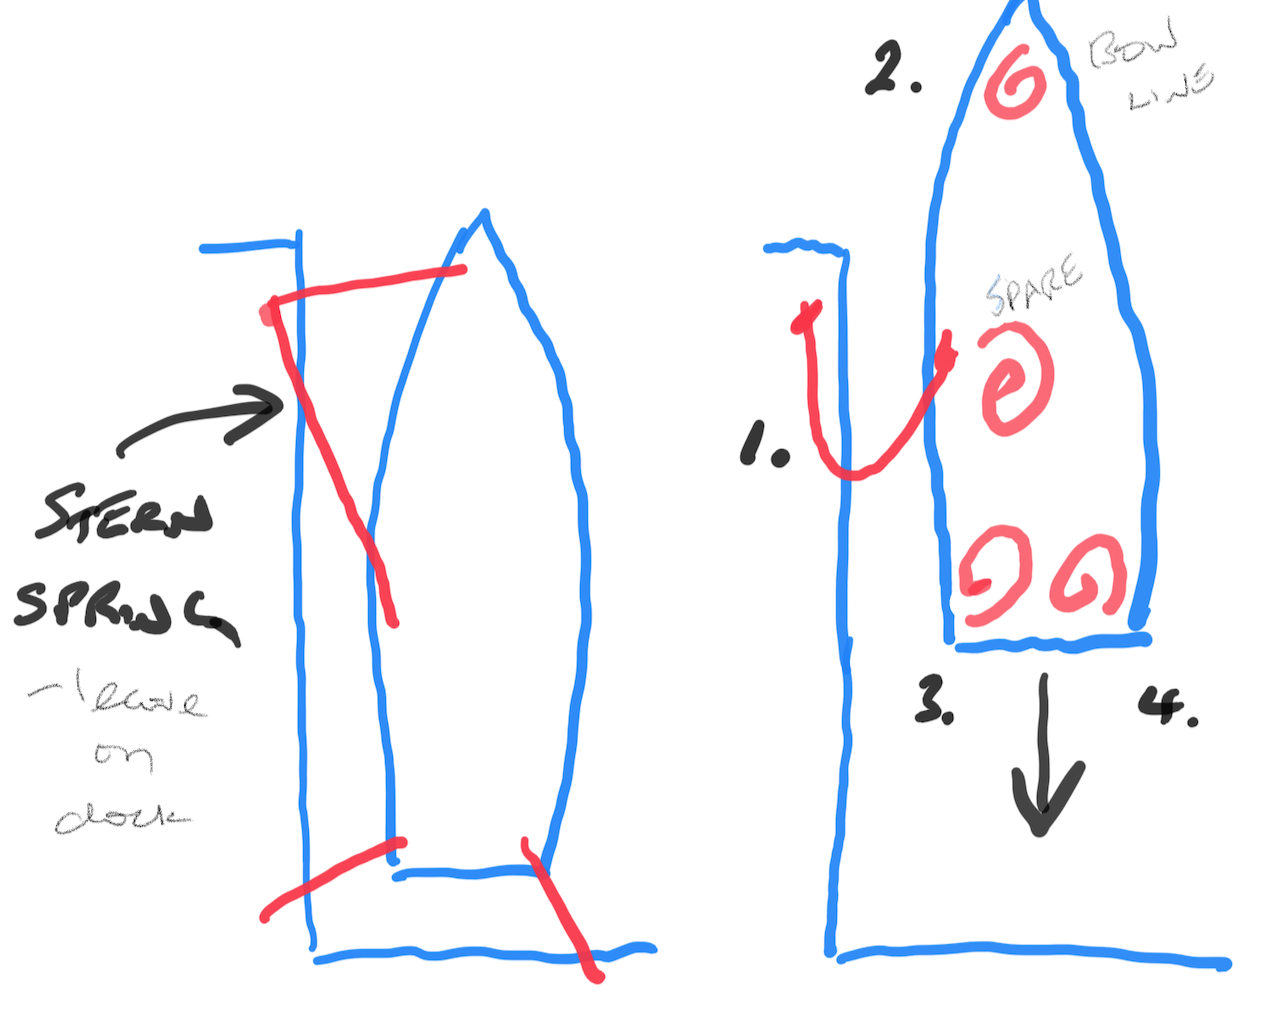 STERN
SPRING
- leave
on
dock
2.
BOW
LINE
SPARE
1.
3.
4.